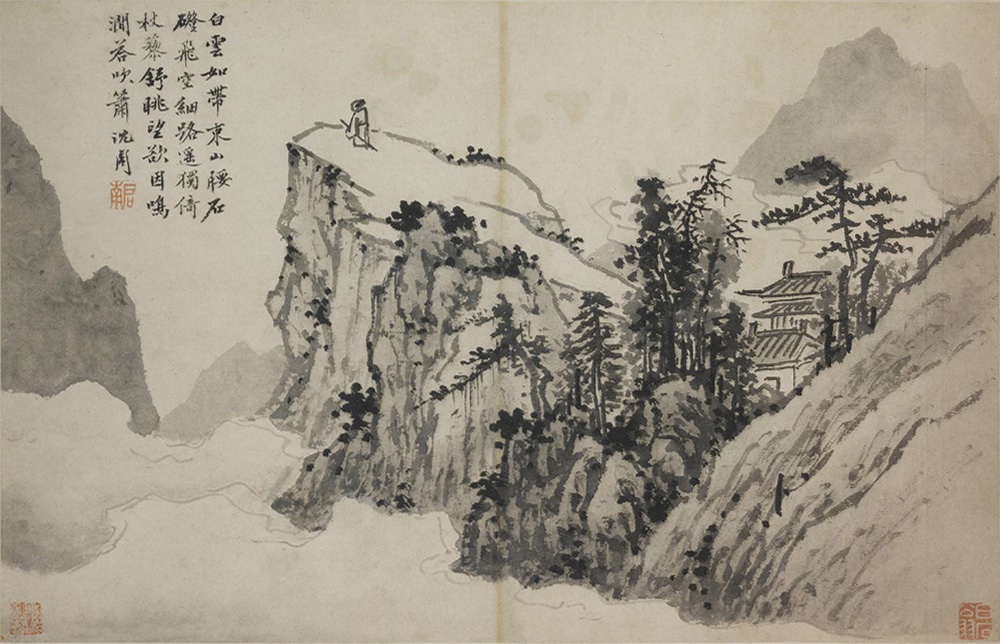 白雲如帶束山腰石
磴飛空細路遙獨倚
杖藜舒眺望欲因鳴
澗荅吹簫沈周